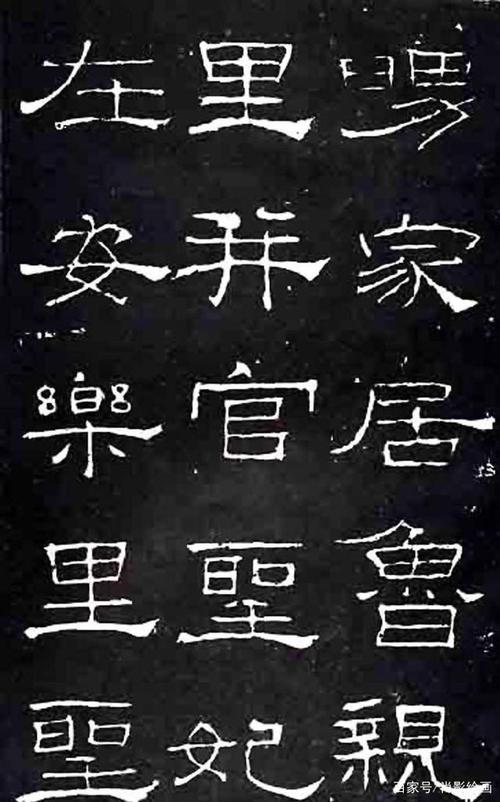 舅家居魯親
里并官聖妃
在安樂里聖
百家号/肖影绘画